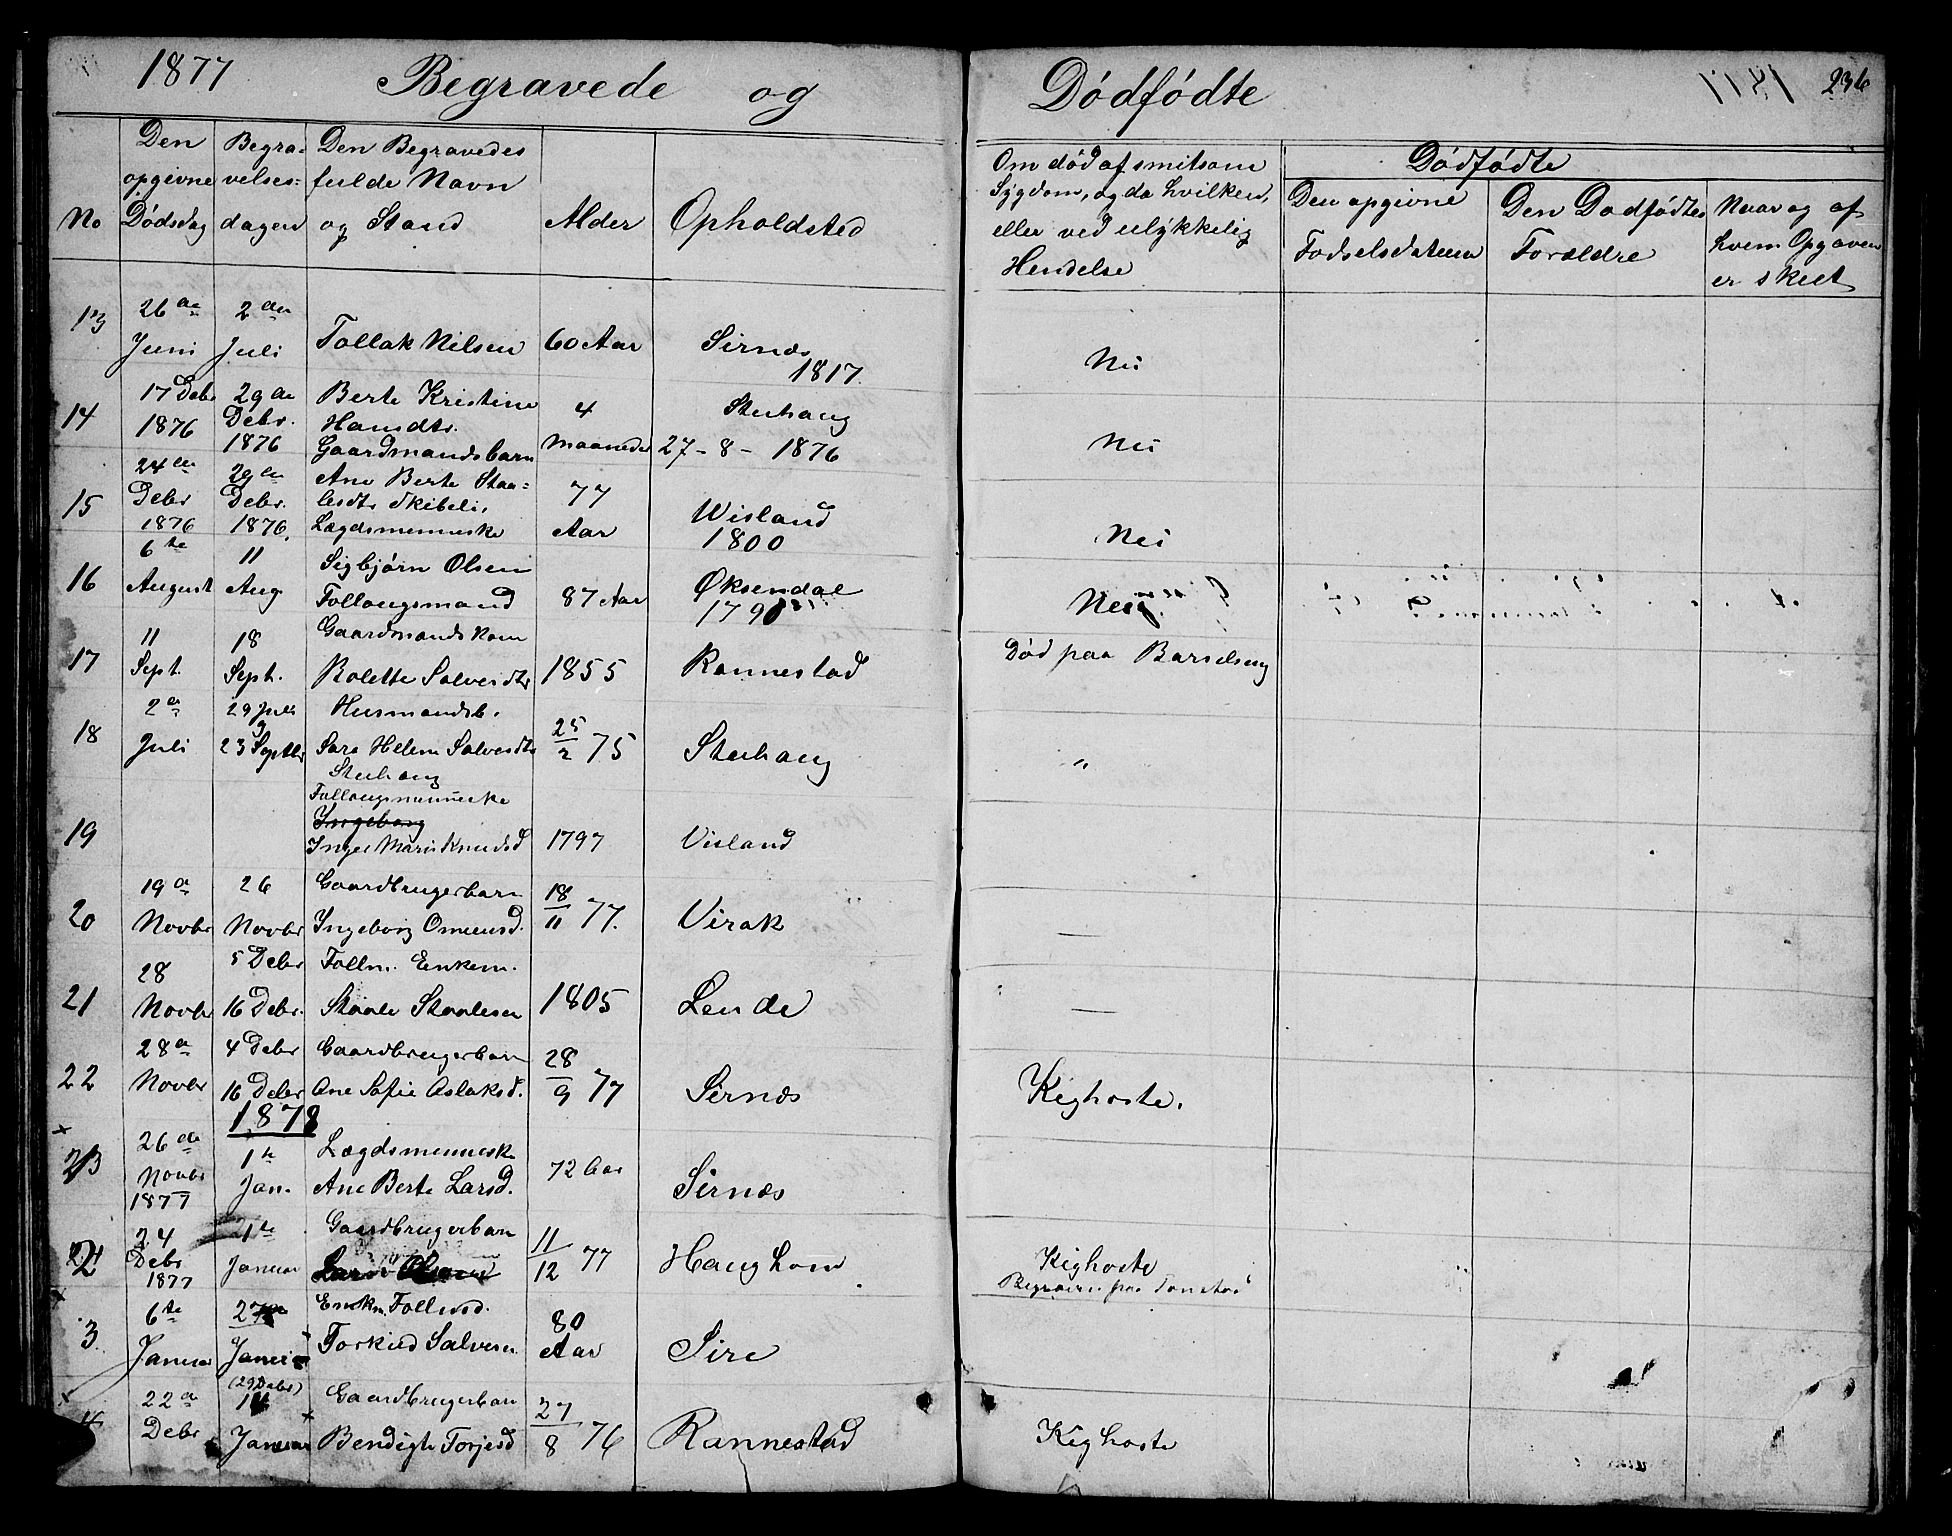 1877 Begravede og Dödfödte 236
No
Den opgivne Dødsdag
Begravelses-dagen
Den Begravedes fulde Navn og Stand
Alder
Opholdsted
Om död af smitsom Sygdom, og da hvilken, eller ved ulykkelig Hendelse
Dödfödte
Den opgivne Fodselsdatum
Den Dodfödtes Forældre
Naar og af hvem Opgaven er skeet
13 26de Juni 2den Juli Tollak Nilsen 60 Aar Sirnæs 1817. Nei
14 17 Debr 1876 29de Debr. 1876 Berte Kristine Hansdtr. Gaardmandsbarn 4 Maaneder Steihaug 27-8-1876 Nei
15 24de Debr 1876 29de Debr. 1876. Ane Berte Staalesdtr Skibeli. Lægdsmenneske 77 Aar Wisland 1800 Nei
16 6te August 11 Aug Sigbjørn Olsen Follaugsmand 87 Aar Øksendal 1790 Nei
17 11 Sept. 18 Sept. Gaardmands kone Rolette Salvesdtr 1855 Rannestad Död paa Barselseng
18 2de Juli 29 Juli 23 Septbr Husmandsb. Sara Helene Salvesdtr Steihaug 25/2 75 Steihaug "
19 Follaugsmenneske Ingeborg Inger Marie Knudsd 1797 Visland
20 19de Novbr 26 Novbr Gaardbrugerbarn Ingeborg Omunsd. 18/11 77. Virak —
21 28 Novbr 5 Debr 16 Debr. Follm. Enkem. Staale Staalesen 1805 Lende —
22 28de Novbr 4 Debr 16 Debr Gaardbrugerbarn Ane Sofie Aslaksd. 28/9 77 Sirnæs Kighoste.
1878
x 1 26de Novbr 1877 1te Jan. Lægdsmenneske Ane Berte Larsd. 72 Aar Sirnæs
2 24 Debr 1877 1te Januar Gaardbrugerbarn 11/12 77 Haughom Kighoste
Begraven paa Tonstad
x 3. 6te Januar 27 Januar Enkm. Follmd. Torkild Salvesen 80 Aar Sire
x 4 22de Debr (29 Debr) 14 Januar x Gaardbrugerbarn Bendigte Torjesd 27/8 76 Rannestad Kighoste